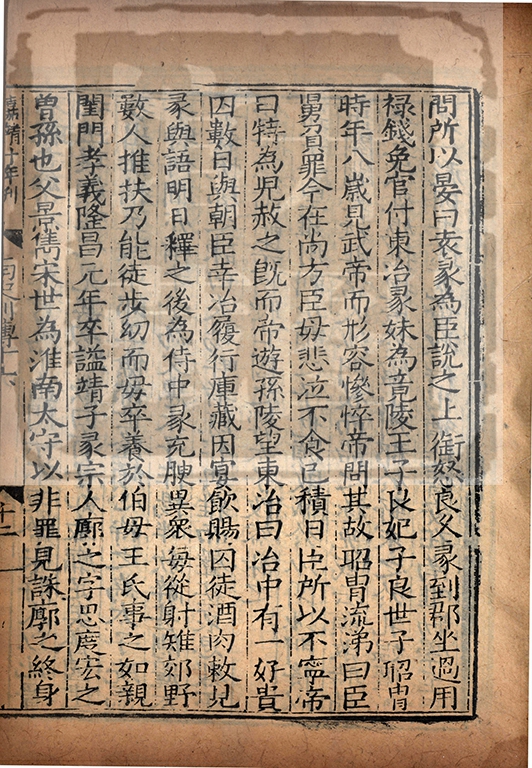 問所以晏曰袁彖為臣說之上銜怒良久彖到郡坐過用
祿錢免官付東冶彖妹為竟陵王子良妃子良世子昭胄
時年八歲見武帝而形容慘悴帝問其故昭胄流涕曰臣
舅負罪今在尚方臣母悲泣不食已積日臣所以不寧帝
曰特為兒赦之既而帝遊孫陵望東冶曰冶中有一好貴
囚數日與朝臣幸冶履行庫藏因宴飲賜囚徒酒肉敕見
彖與語明日釋之後為侍中彖充腴異衆每從射雉郊野
數人推扶乃能徒步幼而母卒養於伯母王氏事之如親
閨門孝義隆昌元年卒謚靖子彖宗人廓之字思度宏之
曾孫也父景雋宋世為淮南太守以非罪見誅廓之終身
嘉靖十年刊
十二